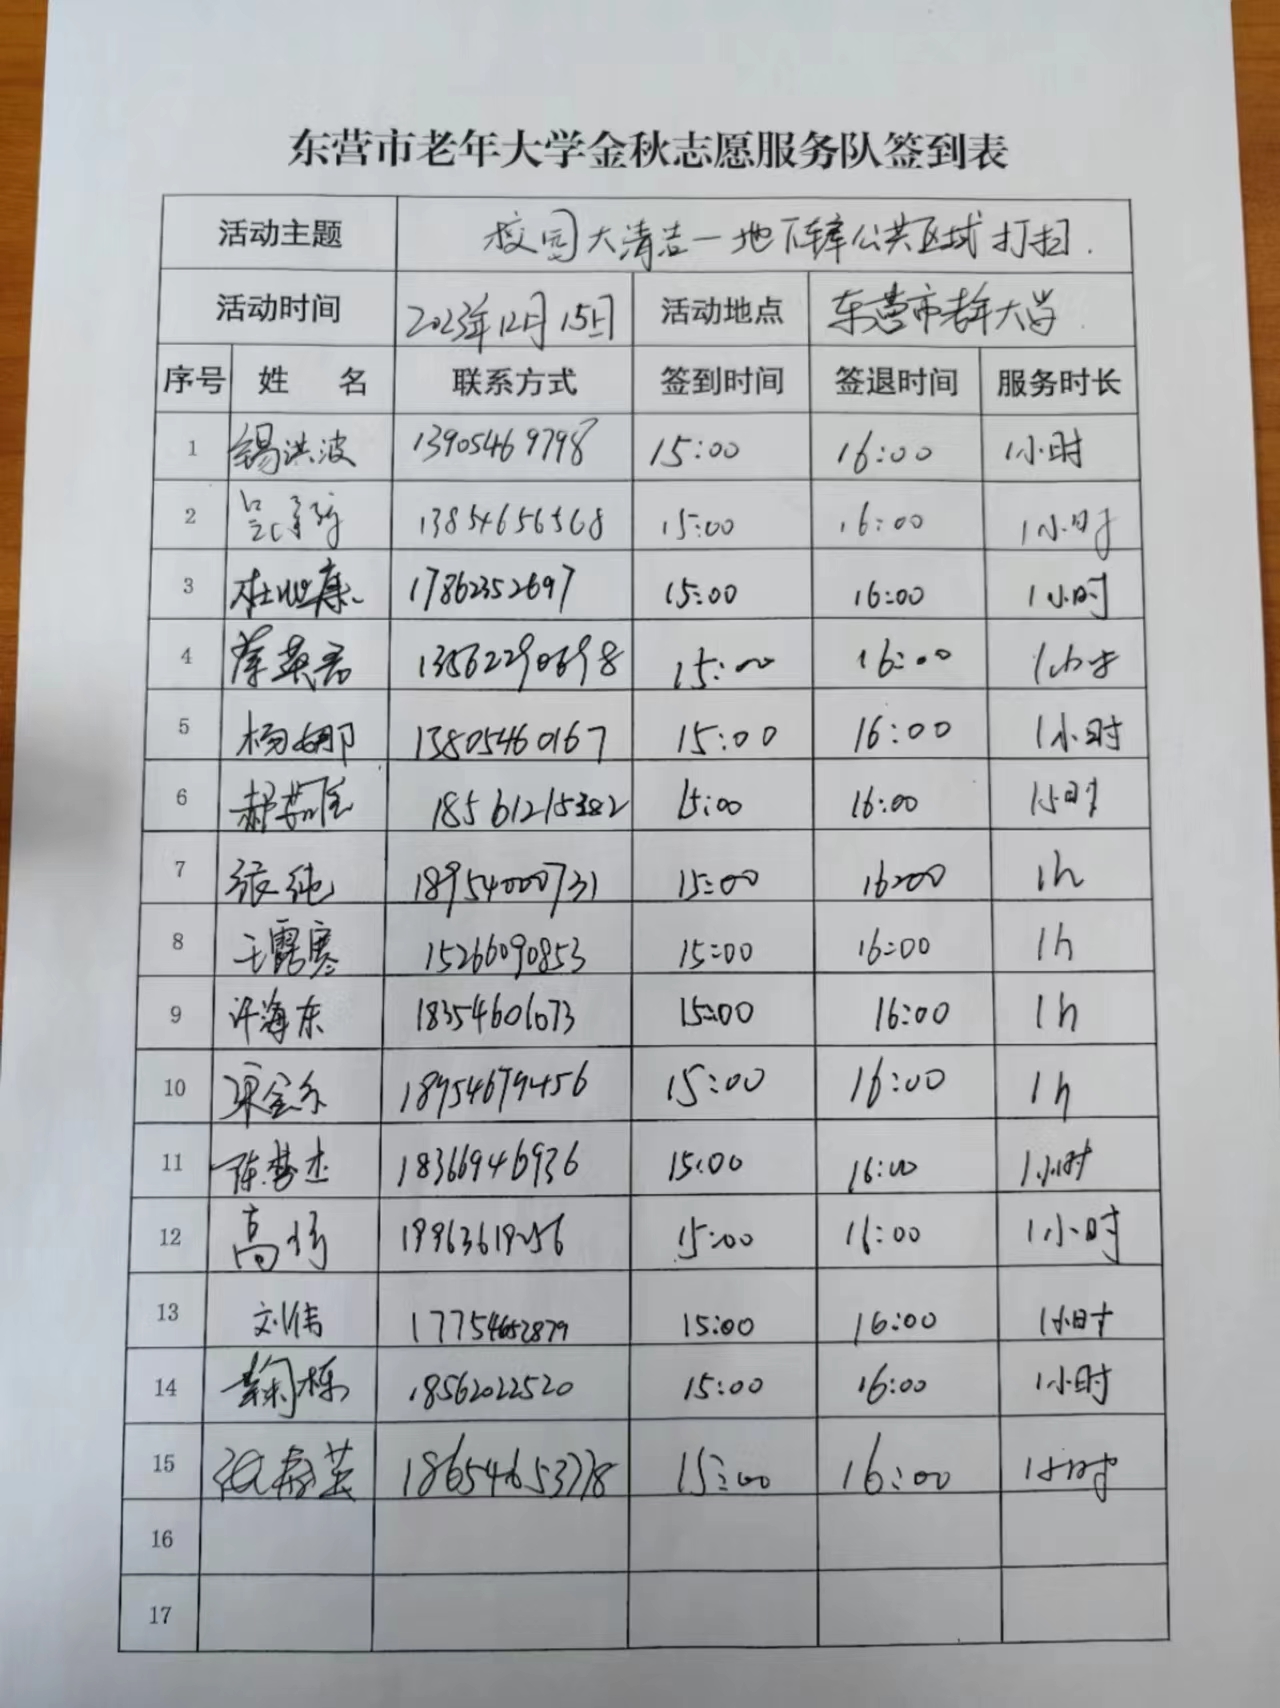 东营市老年大学金秋志愿服务队签到表
活动主题 校园大清洁一地下车库公共区域打扫.
活动时间 2023年12月15日 活动地点 东营市老年大学
序号 姓 名 联系方式 签到时间 签退时间 服务时长
1 锡洪波 13905469798 15:00 16:00 1小时
2 13854656568 15:00 16:00 1小时
3 17862352697 15:00 16:00 1小时
4 15:00 16:00 1小时
5 杨娜 13805460167 15:00 16:00 1小时
6 18561215382 15:00 16:00 1小时
7 张纯 18954000731 15:00 16:00 1h
8 王露寒 15266090853 15:00 16:00 1h
9 许海东 18354601673 15:00 16:00 1h
10 18954679456 15:00 16:00 1h
11 陈梦杰 18366946936 15:00 16:00 1小时
12 15:00 16:00 1小时
13 刘伟 17754652879 15:00 16:00 1小时
14 鞠栋 18562022520 15:00 16:00 1小时
15 18654653778 15:00 16:00 1小时
16
17